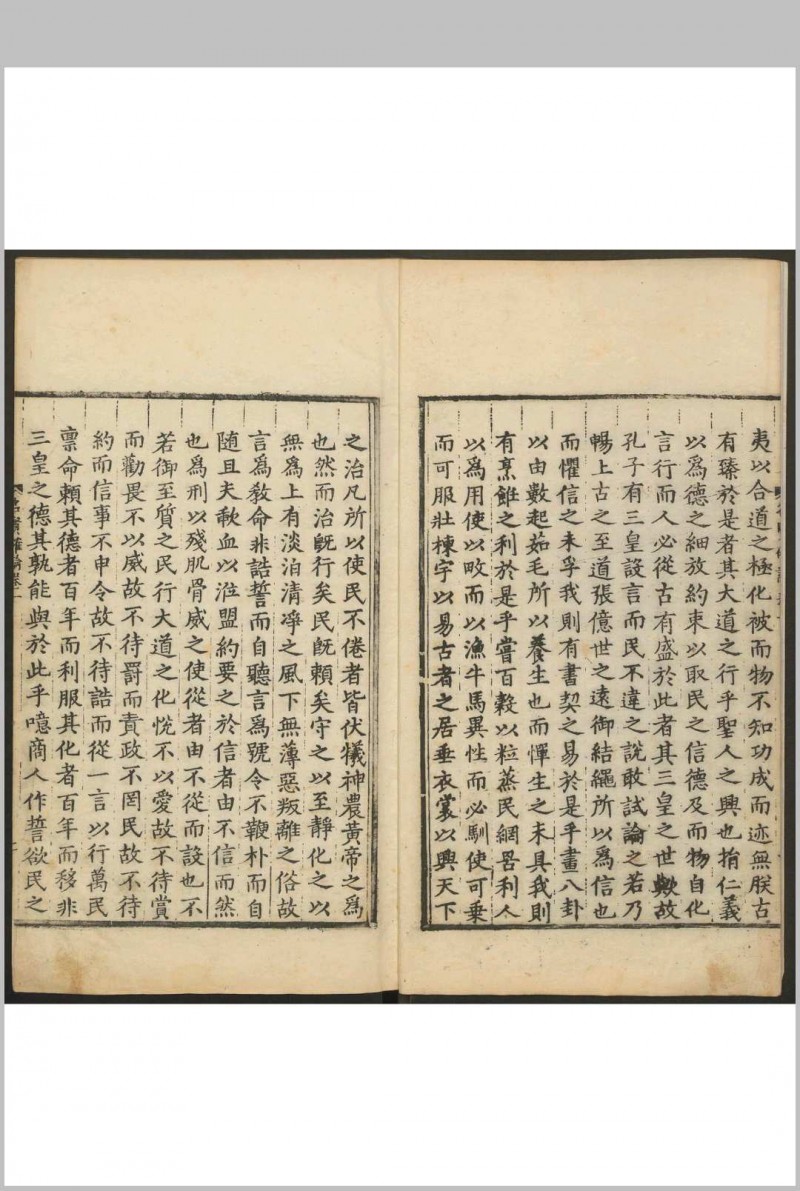 夷以合道之極化被而物不知功成而迹無朕古
有臻於是者其大道之行乎聖人之興也揹仁義
以爲德之細放約束以取民之信德及而物自化
言行而人必從古有盛於此者其三皇之世歟故
孔子有三皇設言而民不違之說敢試論之若乃
暢上古之至道張億世之遠御結繩所以爲信也
而懼信之未孚我則有書契之易於是乎畫八卦
以由數起茹毛所以養生也而憚生之未具我則
有烹飪之利於是乎嘗百穀以粒蒸民網罟利人
以爲用使以畋而以漁牛馬異性而必馴使可乗
而可服壯棟宇以易古者之居垂衣裳以興天下
之治凡所以使民不倦者皆伏犧神農黃帝之爲
也然而治旣行矣民旣賴矣守之以至靜化之以
無爲上有淡泊清凈之風下無薄惡叛離之俗故
言爲敎命非誥誓而自聽言爲號令不鞭朴而自
随且夫歃血以涖盟約要之於信者由不信而然
也爲刑以殘肌骨威之使從者由不從而設也不
若御至質之民行大道之化恱不以愛故不待賞
而勸畏不以威故不待罰而責政不罔民故不待
約而信事不申令故不待誥而從一言以行萬民
禀命賴其德者百年而利服其化者百年而移非
三皇之德其孰能與於此乎噫商人作誓欲民之